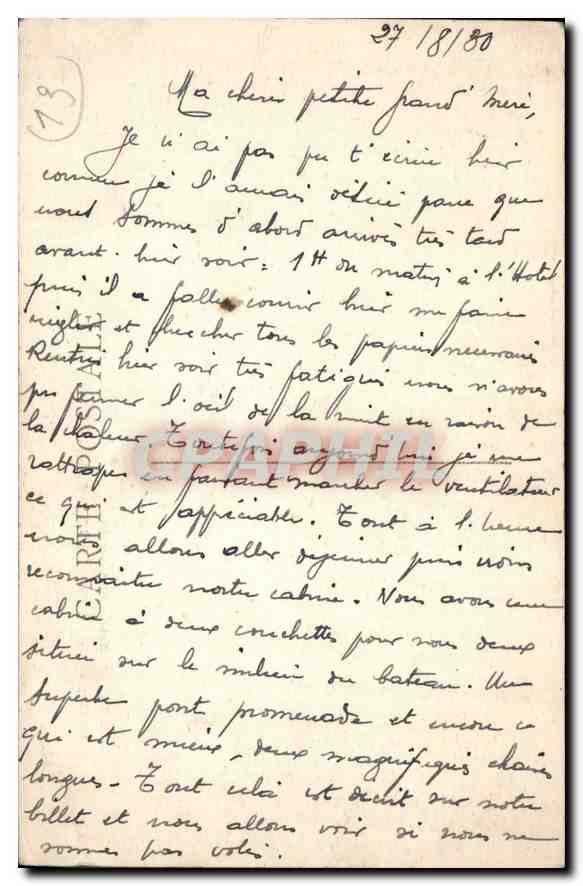 27/8/30
13
Ma cherie petite Grand'Mère,
Je n'ai pas pu t'ecrire hier
comme je l'aurais désiré parce que
nous sommes d'abord arrivés très tard
avant-hier soir: 1H du matin à l'Hotel
puis il a fallu courir hier me faire
et chercher tous les papiers necessaires
Rentrés hier soir très fatigués nous n'avons
pu fermer l'oeil de la nuit en raison de
la chaleur. Toutefois aujourd'hui je me
rattrape en faisant marcher le ventilateur
ce qui est appréciable. Tout à l'heure
nous allons aller déjeuner puis irons
reconnaitre notre cabine. Nous avons une
cabine à deux couchettes pour nous deux
située sur le milieu du bateau. Un
superbe pont promenade et encore ce
qui est mieux, deux magnifiques chaises
longues - Tout cela est décrit sur notre
billet et nous allons voir si nous ne
sommes pas volés.
CARTE POSTALE
CPAPHIL